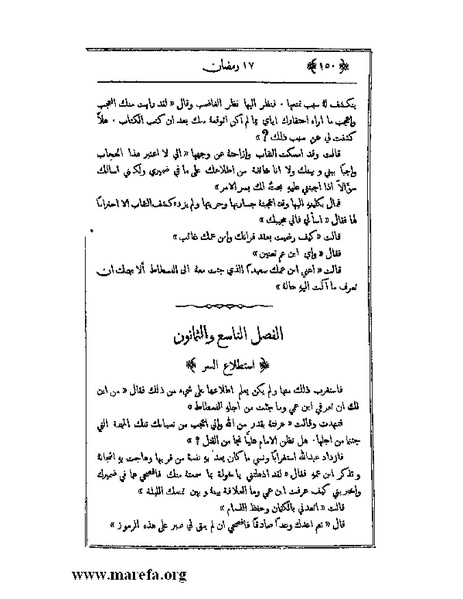 ﴿١٥٠﴾ ١٧ رمضان
ينكشف له سبب تمنعها . فنظر اليها نظر الغاضب وقال « لقد رايت منك العجب
واعجب ما اراه احتقارك اياي مما لم أكن اتوقعهُ منك بعد ان كتب الكتاب . هلاَّ
كشفت لي عن سبب ذلك ? »
قالت وقد امسكت النقاب وازاحتهُ عن وجهها « اني لا اعتبر هذا الحجاب
واجبًا بيني وبينك ولا انا خائفة من اطلاعك على ما في ضميري ولكني اسالك
سؤالاً اذا اجبتني عليهِ بحتُ لك بسر الامر »
فمال بكليتهِ اليها وقد اعجبتهُ جسارتها وحريتها ولم يزده كشف النقاب الا احترامًا
لها فقال « اسألي فاني مجيبك »
قالت « كيف رضيت بعقد قرانك وابن عمك غائب »
فقال « واي ابن عم تعنين »
قالت « اعني ابن عمك سعيدًا الذي جئت معهُ الى الفسطاط ألا يهمك ان
تعرف ما آلت اليهِ حالهُ »
الفصل التاسع والثمانون
﴿ استطلاع السر ﴾
فاستغرب ذلك منها ولم يكن يعلم اطلاعها على شيء من ذلك فقال « من اين
لك ان تعرفي ابن عمي وما جئت من اجلهِ الفسطاط »
فتنهدت وقالت « عرفتهُ بقدر من الله واني اعجب من نسيانك تلك المهمة التي
جئتما من اجلها . هل تظن الامام عليًّا نجا من القتل ? »
فازداد عبدالله استغرابًا ونسي ما كان يعد بهِ نفسهُ من قربها وهاجت بهِ اشجانهُ
وتذكر ابن عمهِ فقال « لقد اذهلتني ياخولة بما سمعتهُ منك فافصحي عما في ضميرك
واخبريني كيف عرفت ابن عمي وما العلاقة بينهُ وبين تمنعك الليلة »
قالت « اتعدني بالكتمان وحفظ الذمام »
قال « نعم اعدك وعدًا صادقًا فافصحي ان لم يبق لي صبر على هذه الرموز »
www.marefa.org